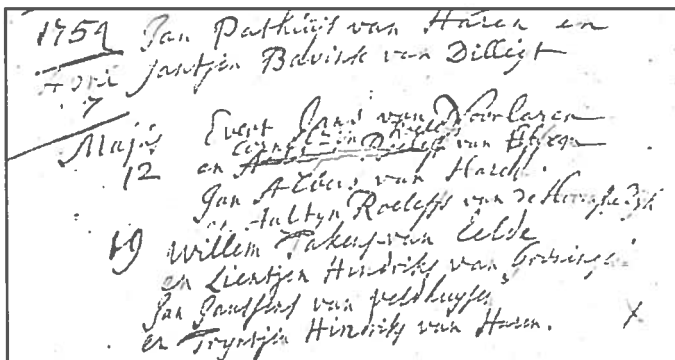 1754 Jan Pathuijs van Haren en
April Jantjen Bavink van Dilligt
7
Majus Evert Jans van Noorlaren
Cornelis Roelofs
12 en van
Jan Albers van Haren
en Aaltyn Roelefs van de
19 Willem Takens van Eelde
en Lientjen Hindriks van Groninge
Jan Janssens van veldhuysen
en Tryntjen Hindriks van Haren. X